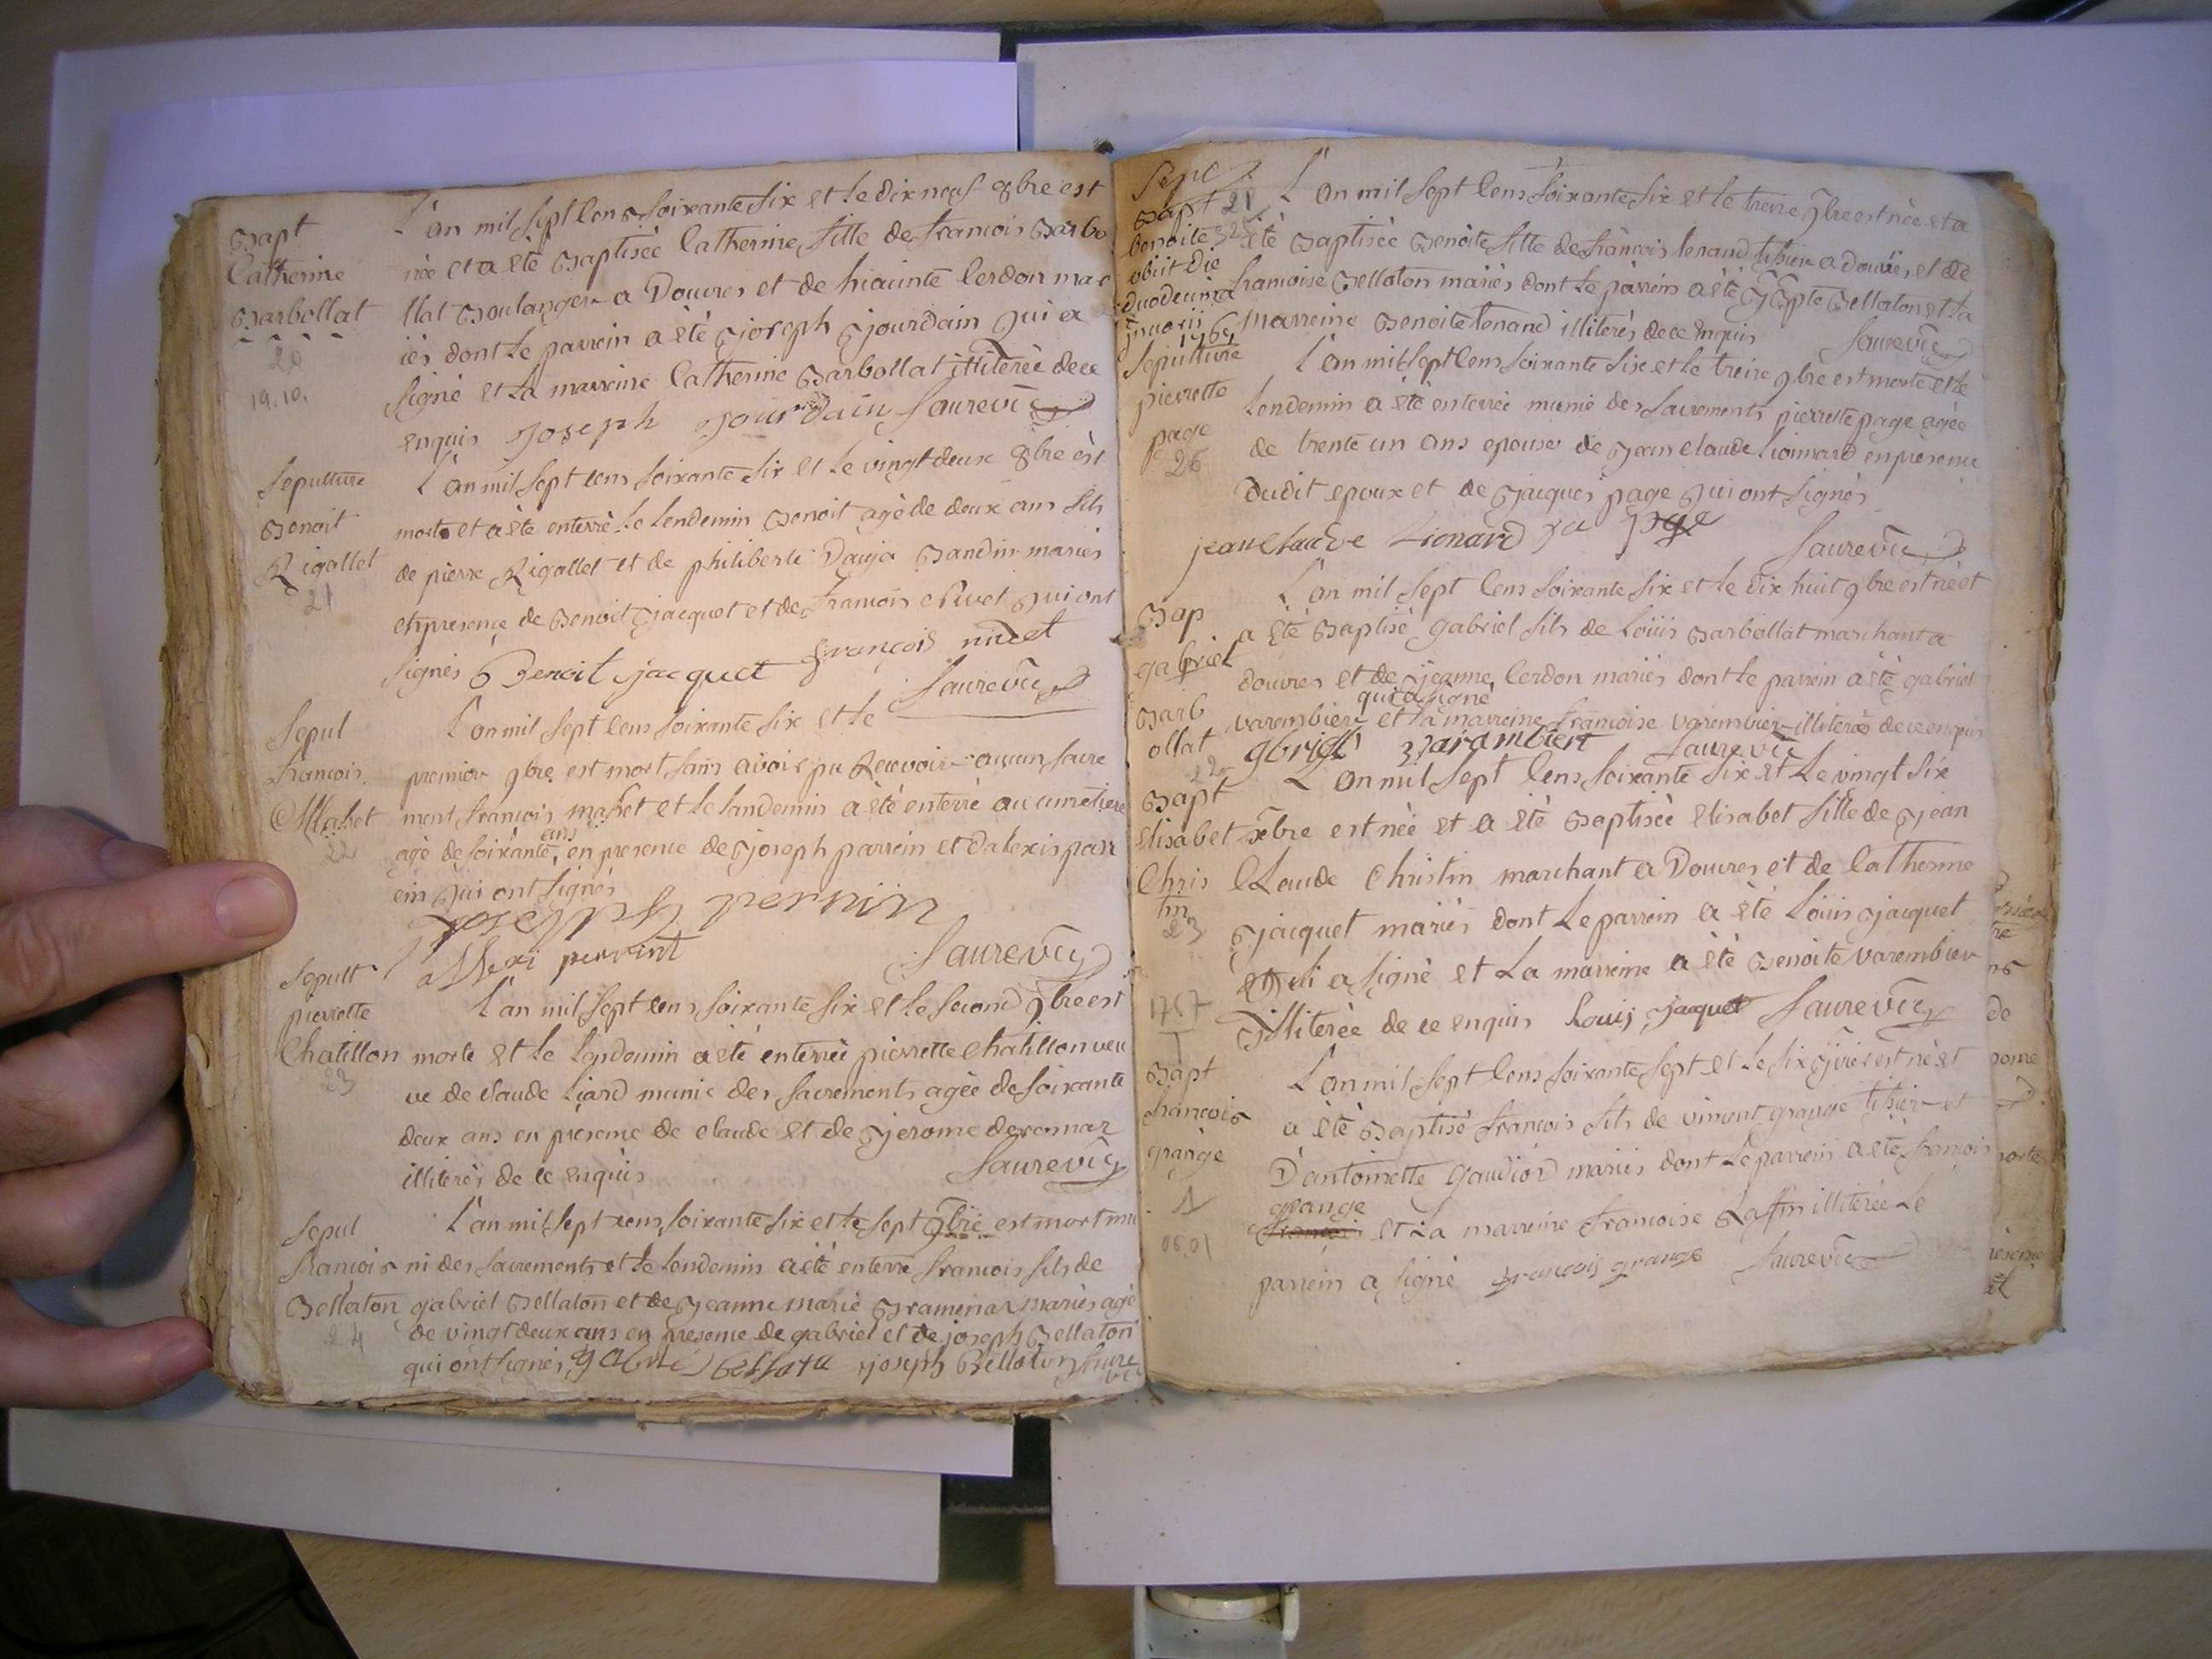 Bapt
Catherine
Barbollat
20
19.10.
L'an mil sept cens soixante six et le dix neuf 8bre est
née et a été Baptisée Catherine fille de francois Barbo
llat Boulanger a Douvres et de hiacinte Cerdon mar
iés dont le parrein a été joseph jourdain qui a
signé et la marreine Catherine Barbollat illiterée de ce
enquis Joseph Jourdain Saurevic
Sepulture
Benoit
Rigollet
21
L'an mil sept cens soixante six et le vingt deux 8bre est
morte et a été enterré le lendemin Benoit agé de deux ans fils
de pierre Rigollet et de philiberte Dauja Bandin mariés
en presence de Benoit jacquet et de francois nivet qui ont
signés Benoit jacquet françois nivet
Saurevic
Sepul
francois
Mabet
22
L'an mil sept cens soixante six et le
premier 9bre est mort sans avoir pu Recevoir aucun sacre
ment francois mabet et le landemin a été enterré au cimetiere
agé de soixante ans, en presence de joseph parrein et d'alexis parr
ein qui ont signés
Joseph perrin
allexi perrint
Saurevic
Sepult
pierrette
Chatillon
23
L'an mil sept cens soixante six et le second 9bre est
morte et le lendemin a été enterrée pierrette Chatillon veu
ve de claude Liard munie des sacrements agée de soixante
deux ans en presence de claude et de jerome deronnaz
illiterés de ce enquis
Saurevic
Sepul
francois
Bellaton
24
L'an mil sept cens soixante six et le sept 9bre est mort mu
ni des sacrements et le lendemin a été enterré francois fils de
gabriel Bellaton et de jeanne marie Bramenaz mariés agé
de vingt deux ans en presence de gabriel et de joseph Bellaton
qui ont signés gabriel bellata joseph Bellaton Saure
vic
Bapt 21
benoite
obiit die
duodecima
januarii
L'an mil sept cens soixante six et le treize 9bre est née et a
été Baptisée Benoite fille de francois tenand tissier a douvres, et de
francoise Bellaton mariés dont le parrein a été Bellaton et la
marreine Benoite tenand illiterés de ce enquis Saurevic
Sepulture
pierrette
page
26
L'an mil sept cens soixante six et le treize 9bre est morte et le
lendemin a été enterrée munie des sacrements pierrette page agée
de trente un ans epouse de jean claude Lionnard en presence
dudit epoux et de jacques page qui ont signés
jean claude Lionard ja page
Saurevic
Bap
gabriel
Barb
ollat
22
L'an mil sept cens soixante six et le dix huit 9bre est né et
a été Baptisé gabriel fils de Loüis Barbollat marchant a
douvres et de jeanne Cerdon mariés dont le parrein a été gabriel
qui a signé
varembier et la marreine francoise varembier illiterée de ce enquis
gbriell varambiert Saurevic
Bapt
Elisabet
Chris
tin
23
L'an mil sept cens soixante six et le vingt six
xbre est née et a été Baptisée Elisabet fille de jean
Claude Christin marchant a Douvres et de Catherine
jacquet mariés dont le parrein a été Loüis jacquet
qui a signé et la marreine a été Benoite varembier
illiterée de ce enquis Louis jaquet Saurevic
1767
Bapt
francois
grange
1
06.01
L'an mil sept cens soixante sept et le six jvier est né et
a été Baptisé francois fils de vincent grange tissier et
D'antoinette Gaudiod mariés dont le parrein a été francois
grange
et la marreine francoise Laffin illiterée le
parrein a signé françois grange Saurevic